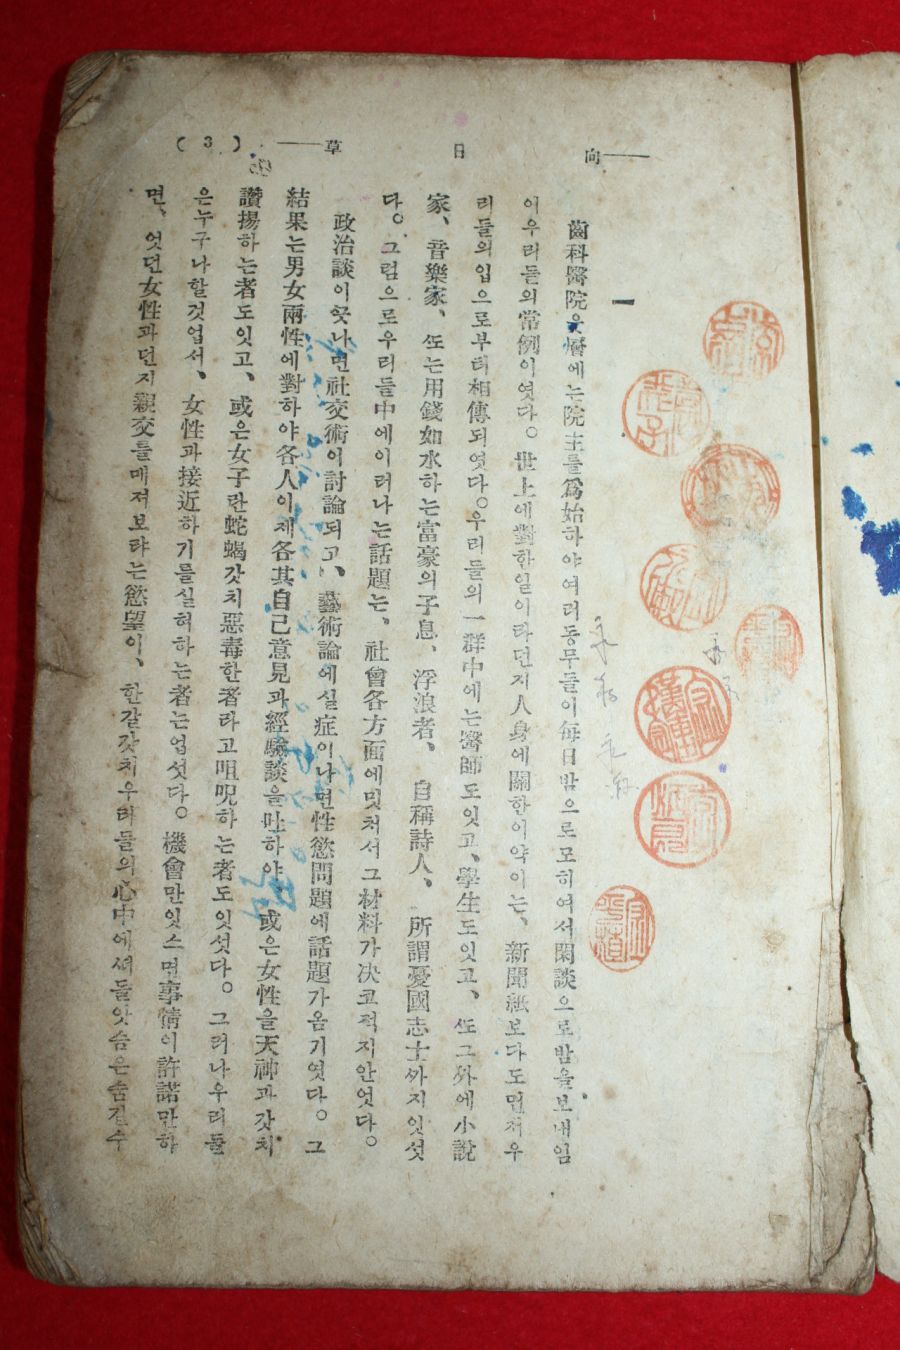 向日草 (3)
一
齒科醫院웃層에는院主를爲始하야여러동무들이每日밤으로모히여서閑談으로밤을보내임
이우리들의常例이엿다。世上에對한일이라던지人身에關한이약이는、新聞紙보다도먼저우
리들의입으로부터相傳되엿다。우리들의一群中에는醫師도잇고、學生도잇고、ᄯᅩ그外에小說
家、音樂家、ᄯᅩ는用錢如水하는富豪의子息、浮浪者、自稱詩人、所謂憂國志士ᄭᅡ지잇섯
다。그럼으로우리들中에이러나는話題는、社會各方面에밋처서그材料가決코적지안엇다。
政治談이ᄭᅳᆺ나면社交術이討論되고、藝術論에실症이나면性慾問題에話題가옴기엿다。그
結果는男女兩性에對하야各人이제各其自己意見과經驗談을吐하야、或은女性을天神과갓치
讚揚하는者도잇고、或은女子란蛇蝎갓치惡毒한者라고咀呪하는者도잇섯다。그러나우리들
은누구나할것업서、女性과接近하기를실혀하는者는업섯다。機會만잇스면事情이許諾만하
면、엇던女性과던지親交를매저보랴는慾望이、한갈갓치우리들의心中에서들앗슴은숨길수